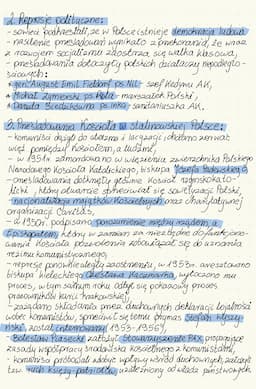 2. Represje polityczne:
- sowieci podkreślali, że w Polsce istnieje demokracja ludowa
- nasilenie prześladowań wynikało z przekonania, że wraz
z rozwojem socjalizmu zaostrza się walka klasowa,
- prześladowania dotyczyły polskich działaczy niepodległo-
ściowych:
• gen. August Emil Fieldorf ps. Nil - szef Kedywu AK,
• Michał Żymierski ps. Rola - marszałek Polski,
• Danuta Siedzikówna ps. Inka - sanitariuszka AK,
3. Prześladowania Kościoła w stalinowskiej Polsce:
- komuniści dążyli do ateizmu i laicyzacji, chciano zerwać
więź pomiędzy kościołem, a ludźmi,
- w 1951r. zamordowano w więzieniu zwierzchnika Polskiego
Narodowego Kościoła Katolickiego, biskupa Józefa
- prześladowania dotknęły głównie Kościół rzymskokato-
licki, który otwarcie sprzeciwiał się sowietyzacji Polski,
- nacjonalizacja majątków kościelnych oraz charytatywnej
organizacji Caritas,
- w 1950r. podpisano porozumienie między rządem, a
Episkopatem, który w zamian za niezbędne do funkcjono-
wania Kościoła pozwolenia zobowiązał się do uznania
reżimu komunistycznego,
- represje ponownie uległy zaostrzeniu, w 1953r. aresztowano
biskupa kieleckiego Czesława Kaczmarka, wytoczono mu
proces, w tym samym roku odbył się pokazowy proces
pracowników kurii krakowskiej,
- zażądano składania przez duchownych deklaracji lojalności
wobec komunistów, sprzeciwił się temu prymas Stefan Wyszy-
ński, został internowany (1953-1956r.),
- Bolesław Piasecki założył Stowarzyszenie PAX, propagujące
zasady współpracy środowiska kościelnego z komunistami,
- komuniści próbowali zdobyć wpływy wśród duchownych, założyli
tzw. ruch księży-patriotów, uzależniony od władz państwowych